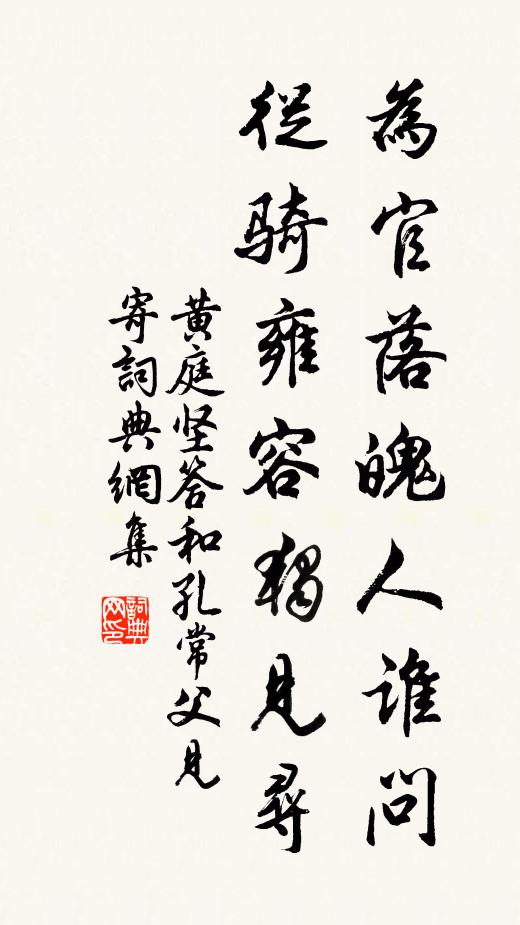 為官落魄人誰問
從騎雍容獨見尋
黄庭坚答和孔常父見
寄詞典網集
詞典网印